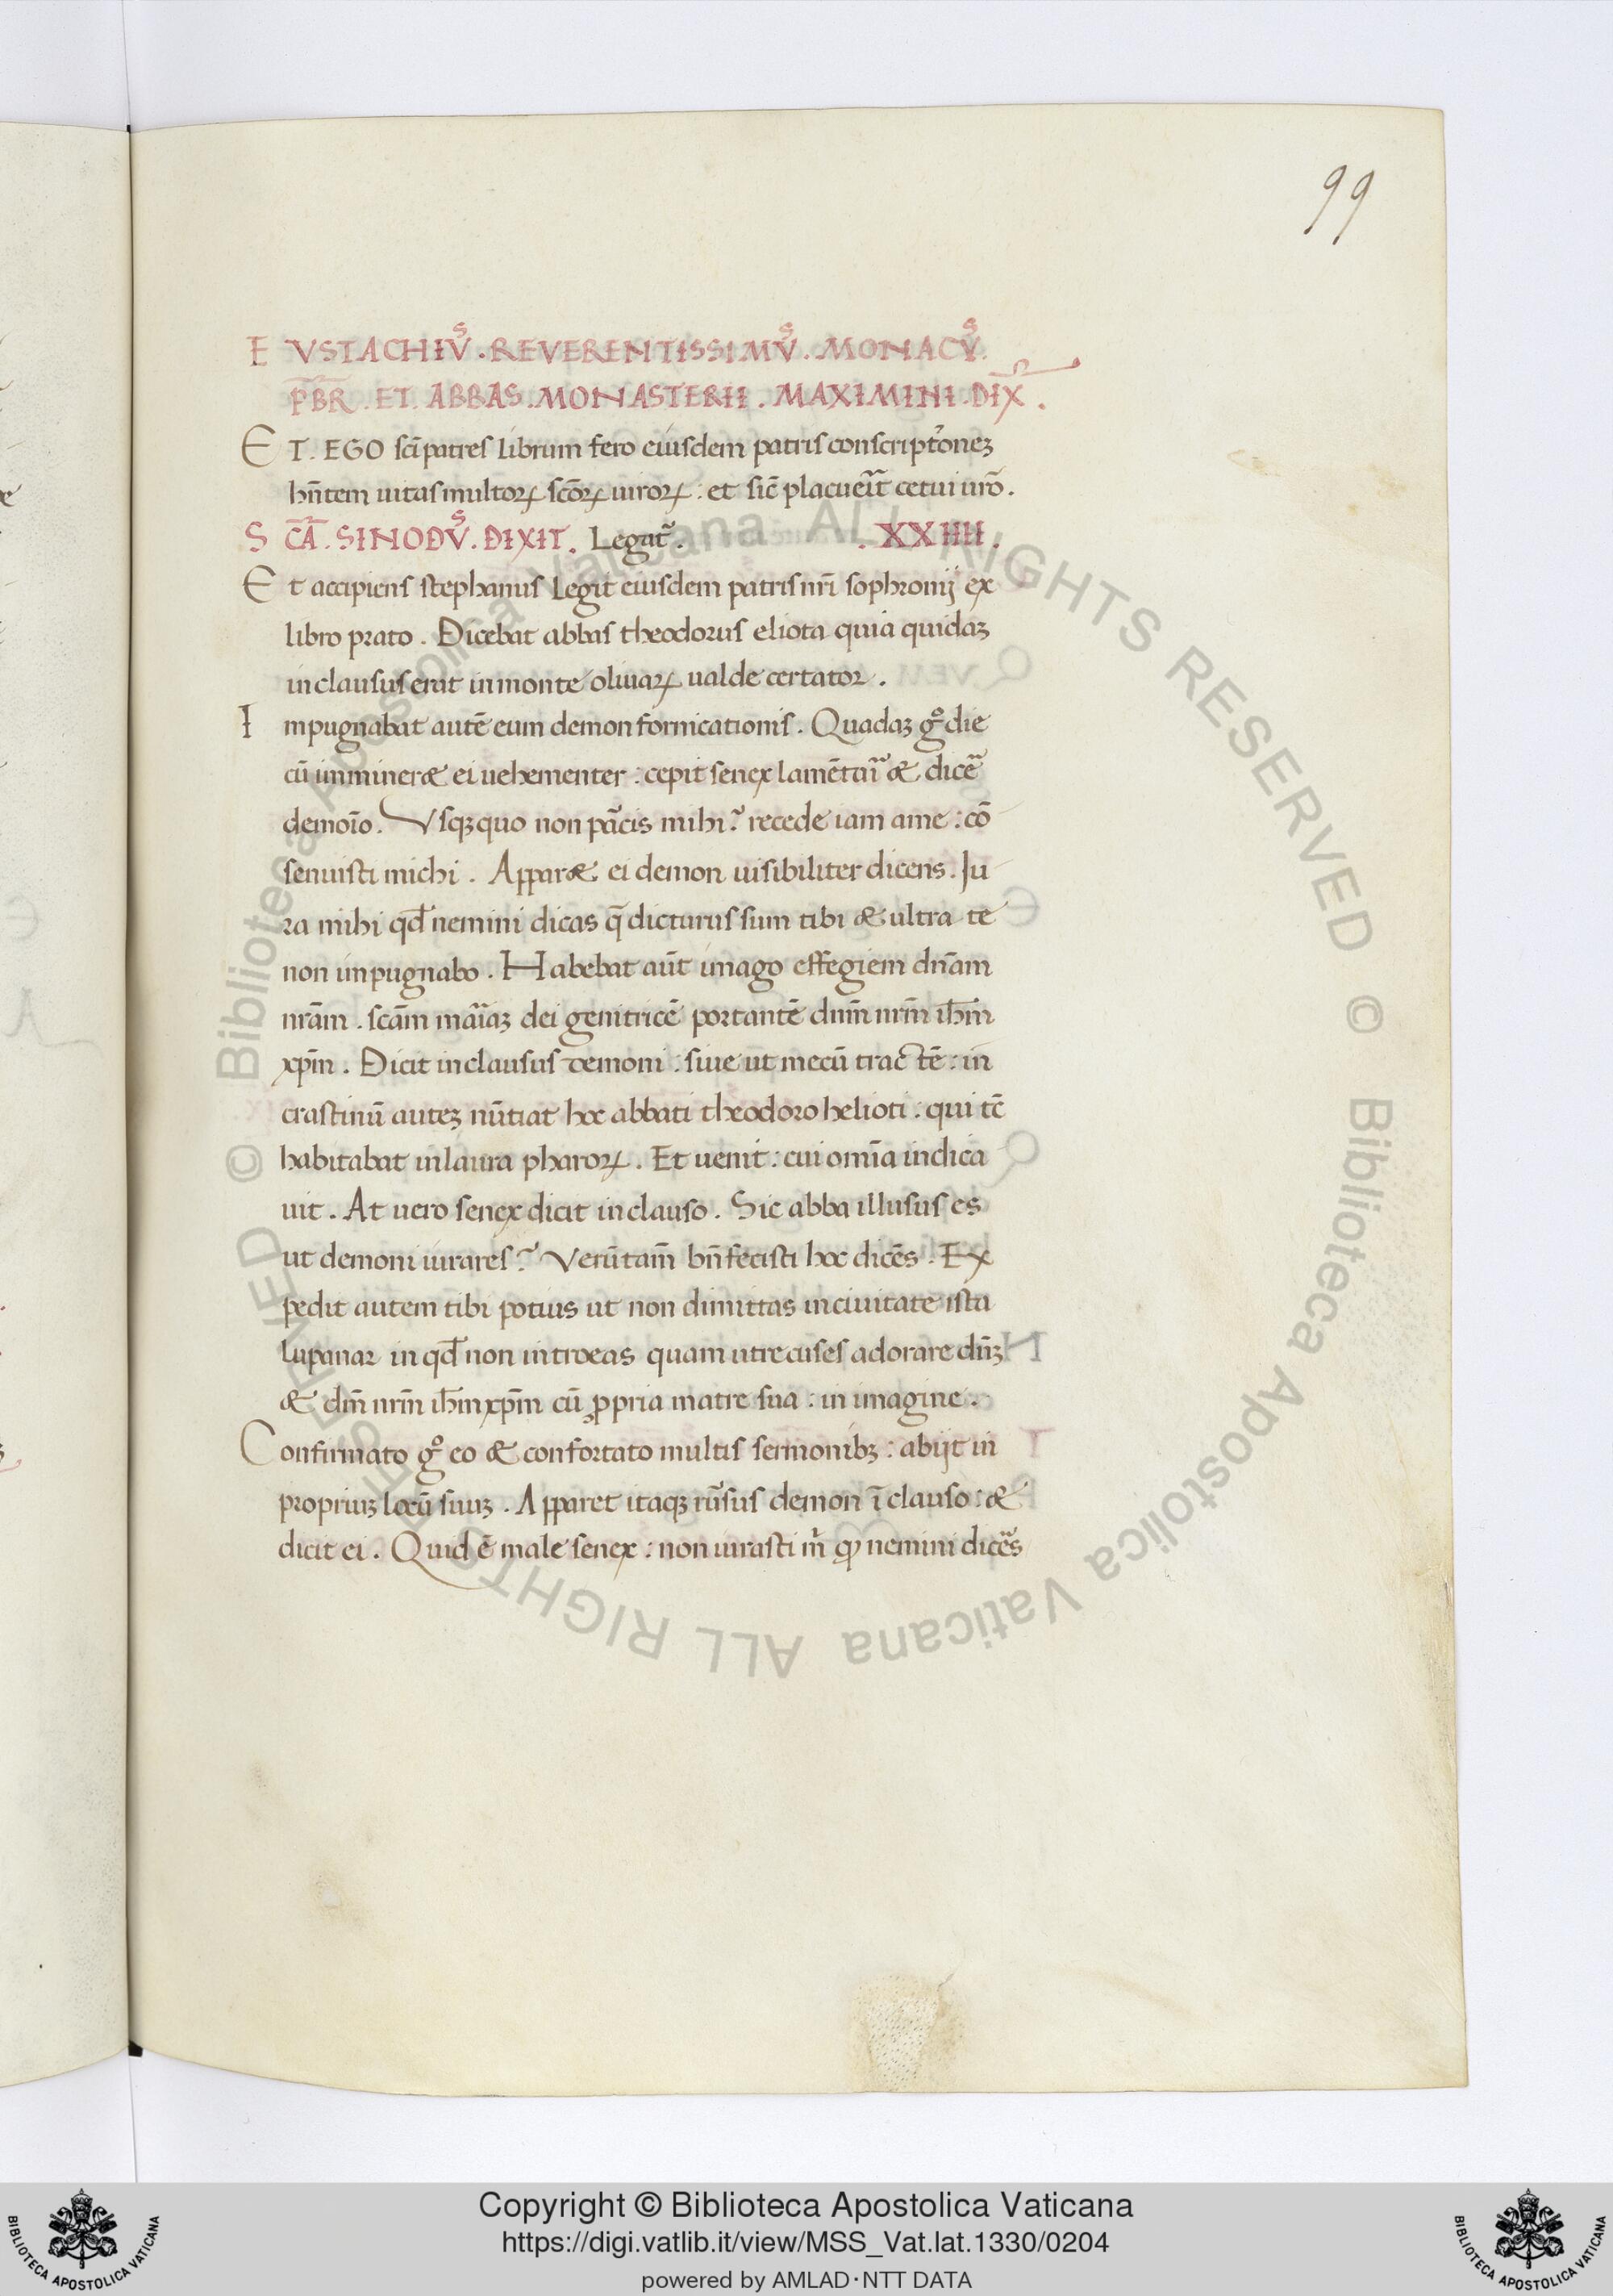 99
EVSTACHIV᷒. REVERENTISSIMV᷒. MONACV᷒.
PB̅R. ET. ABBAS. MONASTERII. MAXIMINI. DIX̅.
ET. EGO sc̅i patres librum fero eiusdem patris conscriptꝰoneꝫ
hn̅tem uitas multoꝝ sc̅oꝝ uiroꝝ : et sic̅ placuerit cetui ur̅o.
SC̅A. SINODV᷒. DIXIT. Legat᷑. .XXIIII.
Et accipiens stephanus Legit eiusdem patris nr̅i sophronij ex
libro prato. Dicebat abbas theodorus eliota quia quidaꝫ
inclusus erat in monte oliuaꝝ ualde certator.
Impugnabat aute̅ eum demon fornicationis. Quadaꝫ gͦ die
cu̅ imminer& ei uehementer : cepit senex lame̅tari & diceᷓ
demo̅io. Vsqꝫquo non parcis mihi? recede iam a me : co̅
senuisti michi. Appar& ei demon uisibiliter dicens. Iu
ra mihi qd̅ nemini dicas q̅ dicturus sum tibi & ultra te
non impugnabo. Habebat aut̅ imago effegiem dn̅am
nr̅am. sc̅am mariaꝫ dei genitrice̅ portante̅ dn̅m nr̅m ih̅m
xp̅m. Dicit inclausus demoni : siue ut mecu̅ tracte̅ : in
crastinu̅ auteꝫ nu̅tiat hoc abbati theodoro helioti : qui tc̅
habitabat in laura pharoꝝ. Et uenit : cui om̅ia indica
uit. At uero senex dicit inclauso. Sic abba illusus es
ut demoni iurares? Veru̅tam̅ bn̅ fecisti hoc dice̅s. Ex
pedit autem tibi potius ut non dimittas in ciuitate ista
Lupanar in qd̅ non introeas quam ut recuses adorare dn̅ꝫ
& dm̅ nr̅m ih̅m xp̅m cu̅ ꝓpria matre sua : in imagine.
Confirmato gͦ eo & confortato multis sermonibꝫ : abijt in
propriuꝫ locu̅ suuꝫ. Apparet itaqꝫ ru̅sus demon i̅clauso : &
dicit ei. Quid e̅ male senex : non iurasti m̍ ꝙ nemini diceᷓs
© Biblioteca Apostolica Vaticana ALL RIGHTS RESERVED © Biblioteca Apostolica Vaticana ALL RIGHTS RESERVED
BIBLIOTECA APOSTOLICA VATICANA
Copyright © Biblioteca Apostolica Vaticana
https://digi.vatlib.it/view/MSS_Vat.lat.1330/0204
powered by AMLAD・NTT DATA
BIBLIOTECA APOSTOLICA VATICANA